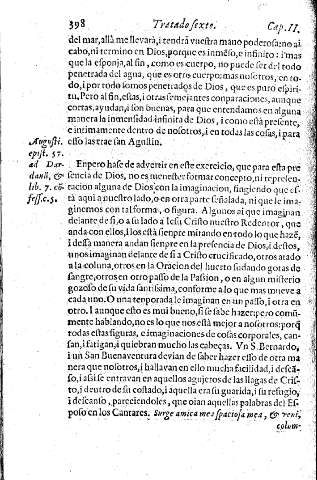 398 Tratado sexto. Cap. II.
del mar, allà me llevarà, i tendrà vuestra mano poderosa: no ai
cabo, ni termino en Dios, porque es inmẽso, e infinito: i mas
que la esponja, al fin, como es cuerpo, no puede ser del todo
penetrada del agua, que es otro cuerpo: mas nosotros, en to-
do, i por todo somos penetrados de Dios, que es puro espiri-
tu. Pero al fin, estas, i otras semejantes conparaciones, aunque
cortas, ayudan, i son buenas, para que entendamos en alguna
manera la inmensidad infinita de Dios, i como està presente,
e intrimamente dentro de nosotros, i en todas las cosas, i para
esso las trae san Agustin.
Augusti.
epist. 57.
ad Dar-
danũ, &
lib. 7. cõ-
fess. c. 5.
Enpero hase de advertir en este exercicio, que para esta pre
sencia de Dios, no es menester formar concepto, ni represen-
tacion alguna de Dios con la imaginacion, fingiendo que es-
tà aqui a nuestro lado, o en otra parte señalada, ni que le ima-
ginemos con tal forma, o figura. Algunos ai que imaginan
delante de si, o a su lado a Iesu Cristo nuestro Redentor, que
anda con ellos, i los està sienpre mirando en todo lo que hazẽ,
i dessa manera andan sienpre en la presencia de Dios, i destos,
unos imaginan delante de si a Cristo crucificado, otros atado
a la coluna, otros en la Oracion del huerto sudando gotas de
sangre, otros en otro passo de la Passion, o en algun misterio
gozoso de su vida santissima, conforme a lo que mas mueve a
cada uno. O una temporada le imaginan en un passo, i otra en
otro. I aunque esto es mui bueno, si se sabe hazer; pero comũ-
mente hablando, no es lo que nos està mejor a nosotros: porq̃
todas estas figuras, e imaginaciones de cosas corporales, can-
san, i fatigan, i quiebran mucho las cabeças. Vn S. Bernardo,
i un San Buenaventura devian de saber hazer esso de otra ma
nera que nosotros, i hallavan en ello mucha facilidad, i descã-
so, i assi se entravan en aquellos agujeros de las llagas de Cris-
to, i dentro de su costado, i aquella era su guarida, i su refugio,
i descanso, pareciendoles, que oian aquellas palabras del Es-
poso en los Cantares. Surge amica mea speciosa mea, & veni,
colum-